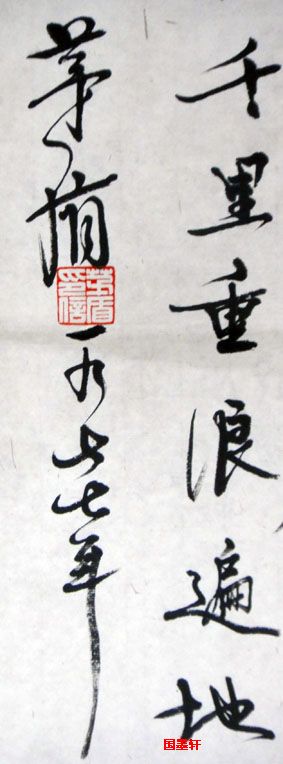 千里重浪遍地
茅盾
一九七七年
茅盾
印信
国墨轩